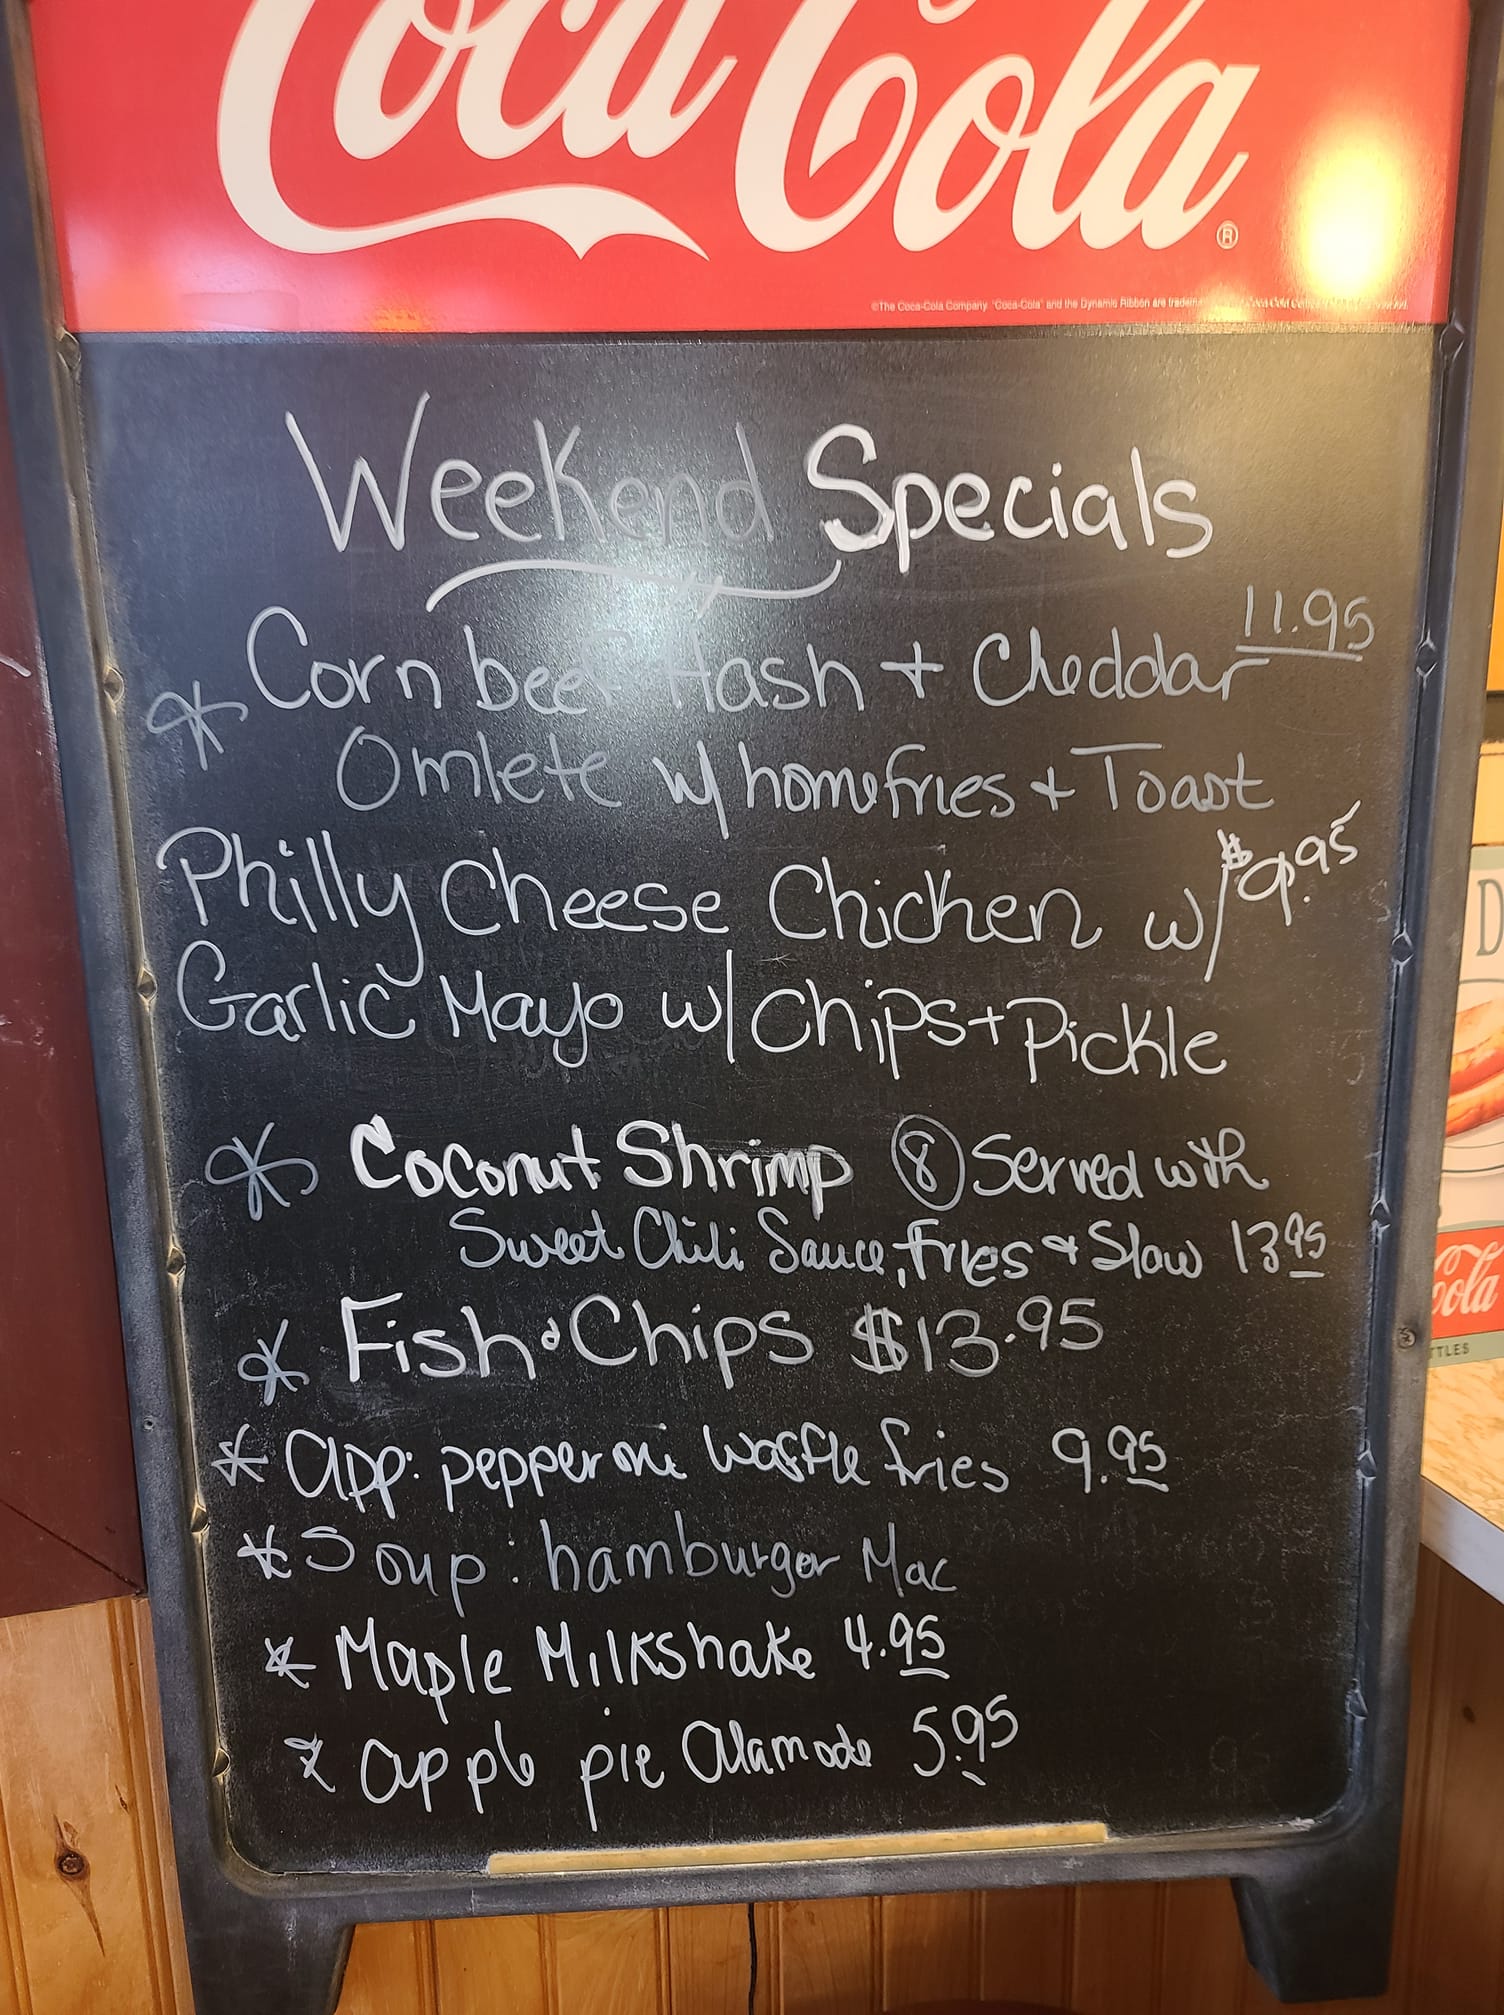 Coca-Cola
®
©The Coca-Cola Company. "Coca-Cola" and the Dynamic Ribbon are
Weekend Specials
11.95
* Corn beef Hash + Cheddar
Omlete w/ homefries + Toast
Philly Cheese Chicken w/ $9.95
Garlic Mayo w/ Chips + Pickle
* Coconut Shrimp (8) Served with
Sweet Chili Sauce, fries & Slaw 13.95
* Fish & Chips $13.95
* app: pepperoni waffle fries 9.95
* Soup: hamburger Mac
* Maple Milkshake 4.95
* apple pie alamode 5.95
D
Cola
TTLES